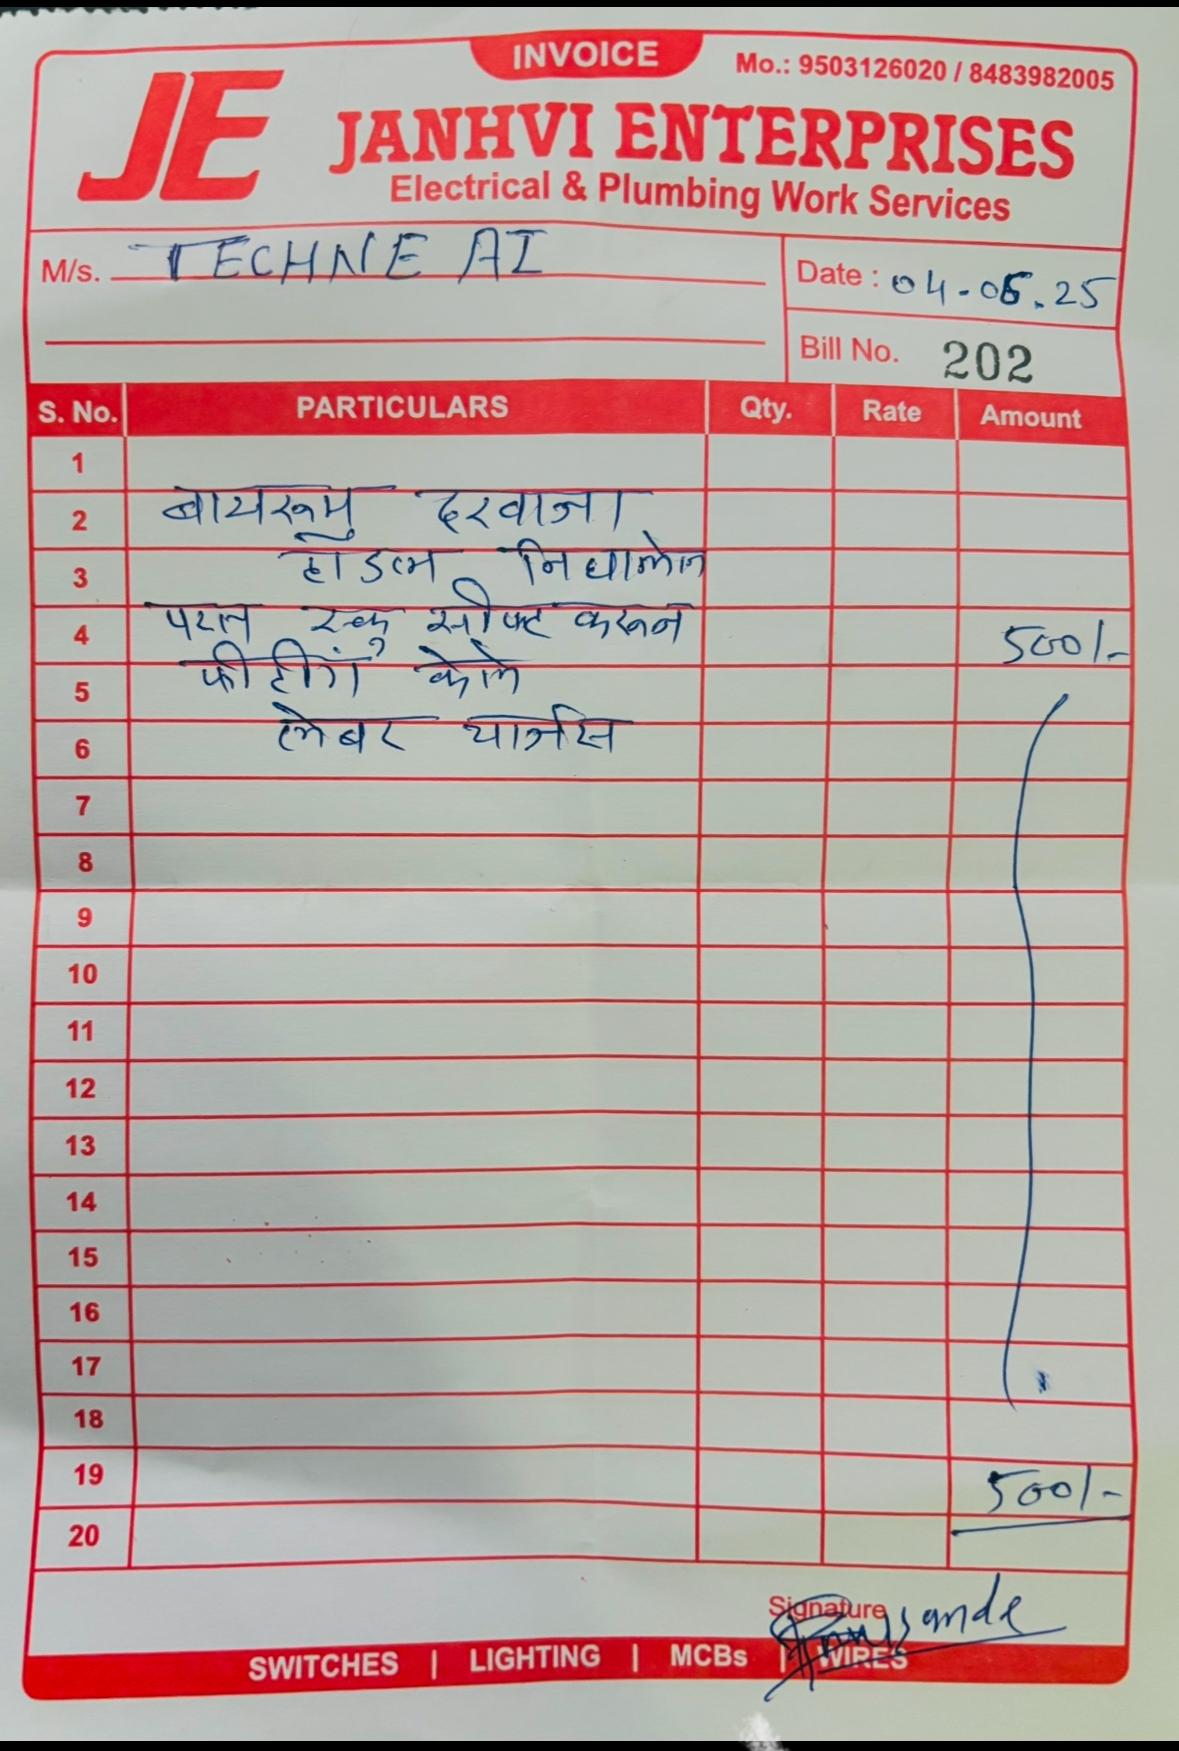 INVOICE
Mo.: 9503126020 / 8483982005
JE
JANHVI ENTERPRISES
Electrical & Plumbing Work Services
M/s. TECHNE AI
Date : 04-06.25
Bill No. 202
S. No. PARTICULARS Qty. Rate Amount
1
2 बाथरूम दरवाजा
3 हॅांडल निघालेल
4 परत स्क्रु सीफ्ट करून 500/-
5 फीटींग केले
6 लेबर चार्जस
7
8
9
10
11
12
13
14
15
16
17
18
19 500/-
20
Signature
SWITCHES | LIGHTING | MCBs | WIRES